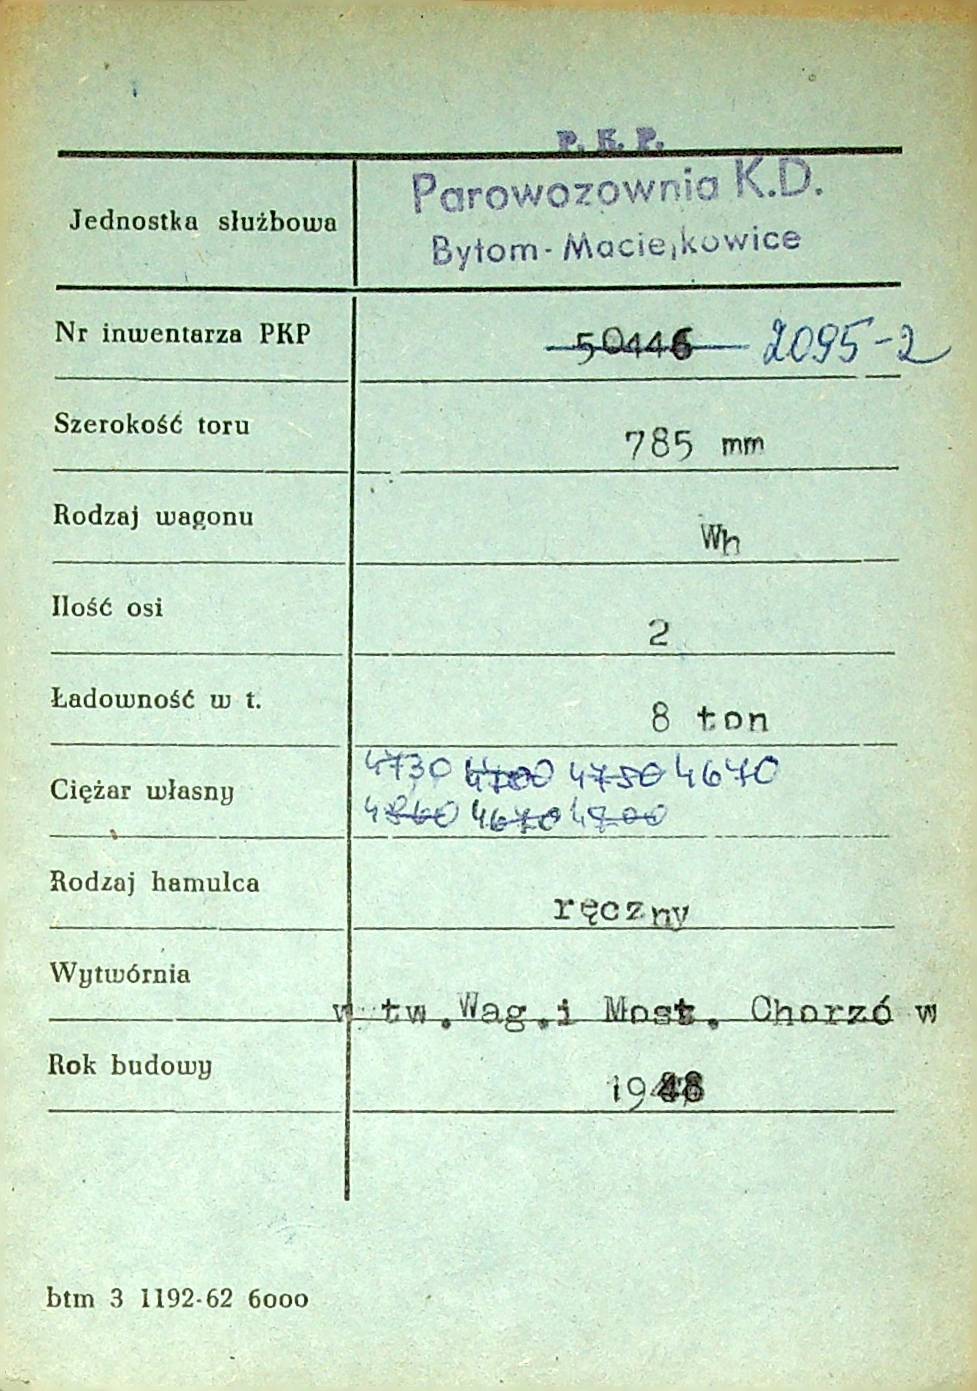 P. K. P.
Parowozownia K.D.
Jednostka służbowa
Bytom-Maciejkowice
Nr inwentarza PKP 50446 2095-2
Szerokość toru 785 mm
Rodzaj wagonu Wh
Ilość osi 2
Ładowność w t. 8 ton
4730 4700 4750 4670
Ciężar własny
4860 4670 4700
Rodzaj hamulca ręczny
Wytwórnia
w tw.Wag.i Most. Chorzó w
Rok budowy 1948
btm 3 1192-62 6000